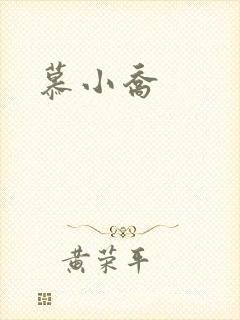 慕小乔
黄荣平